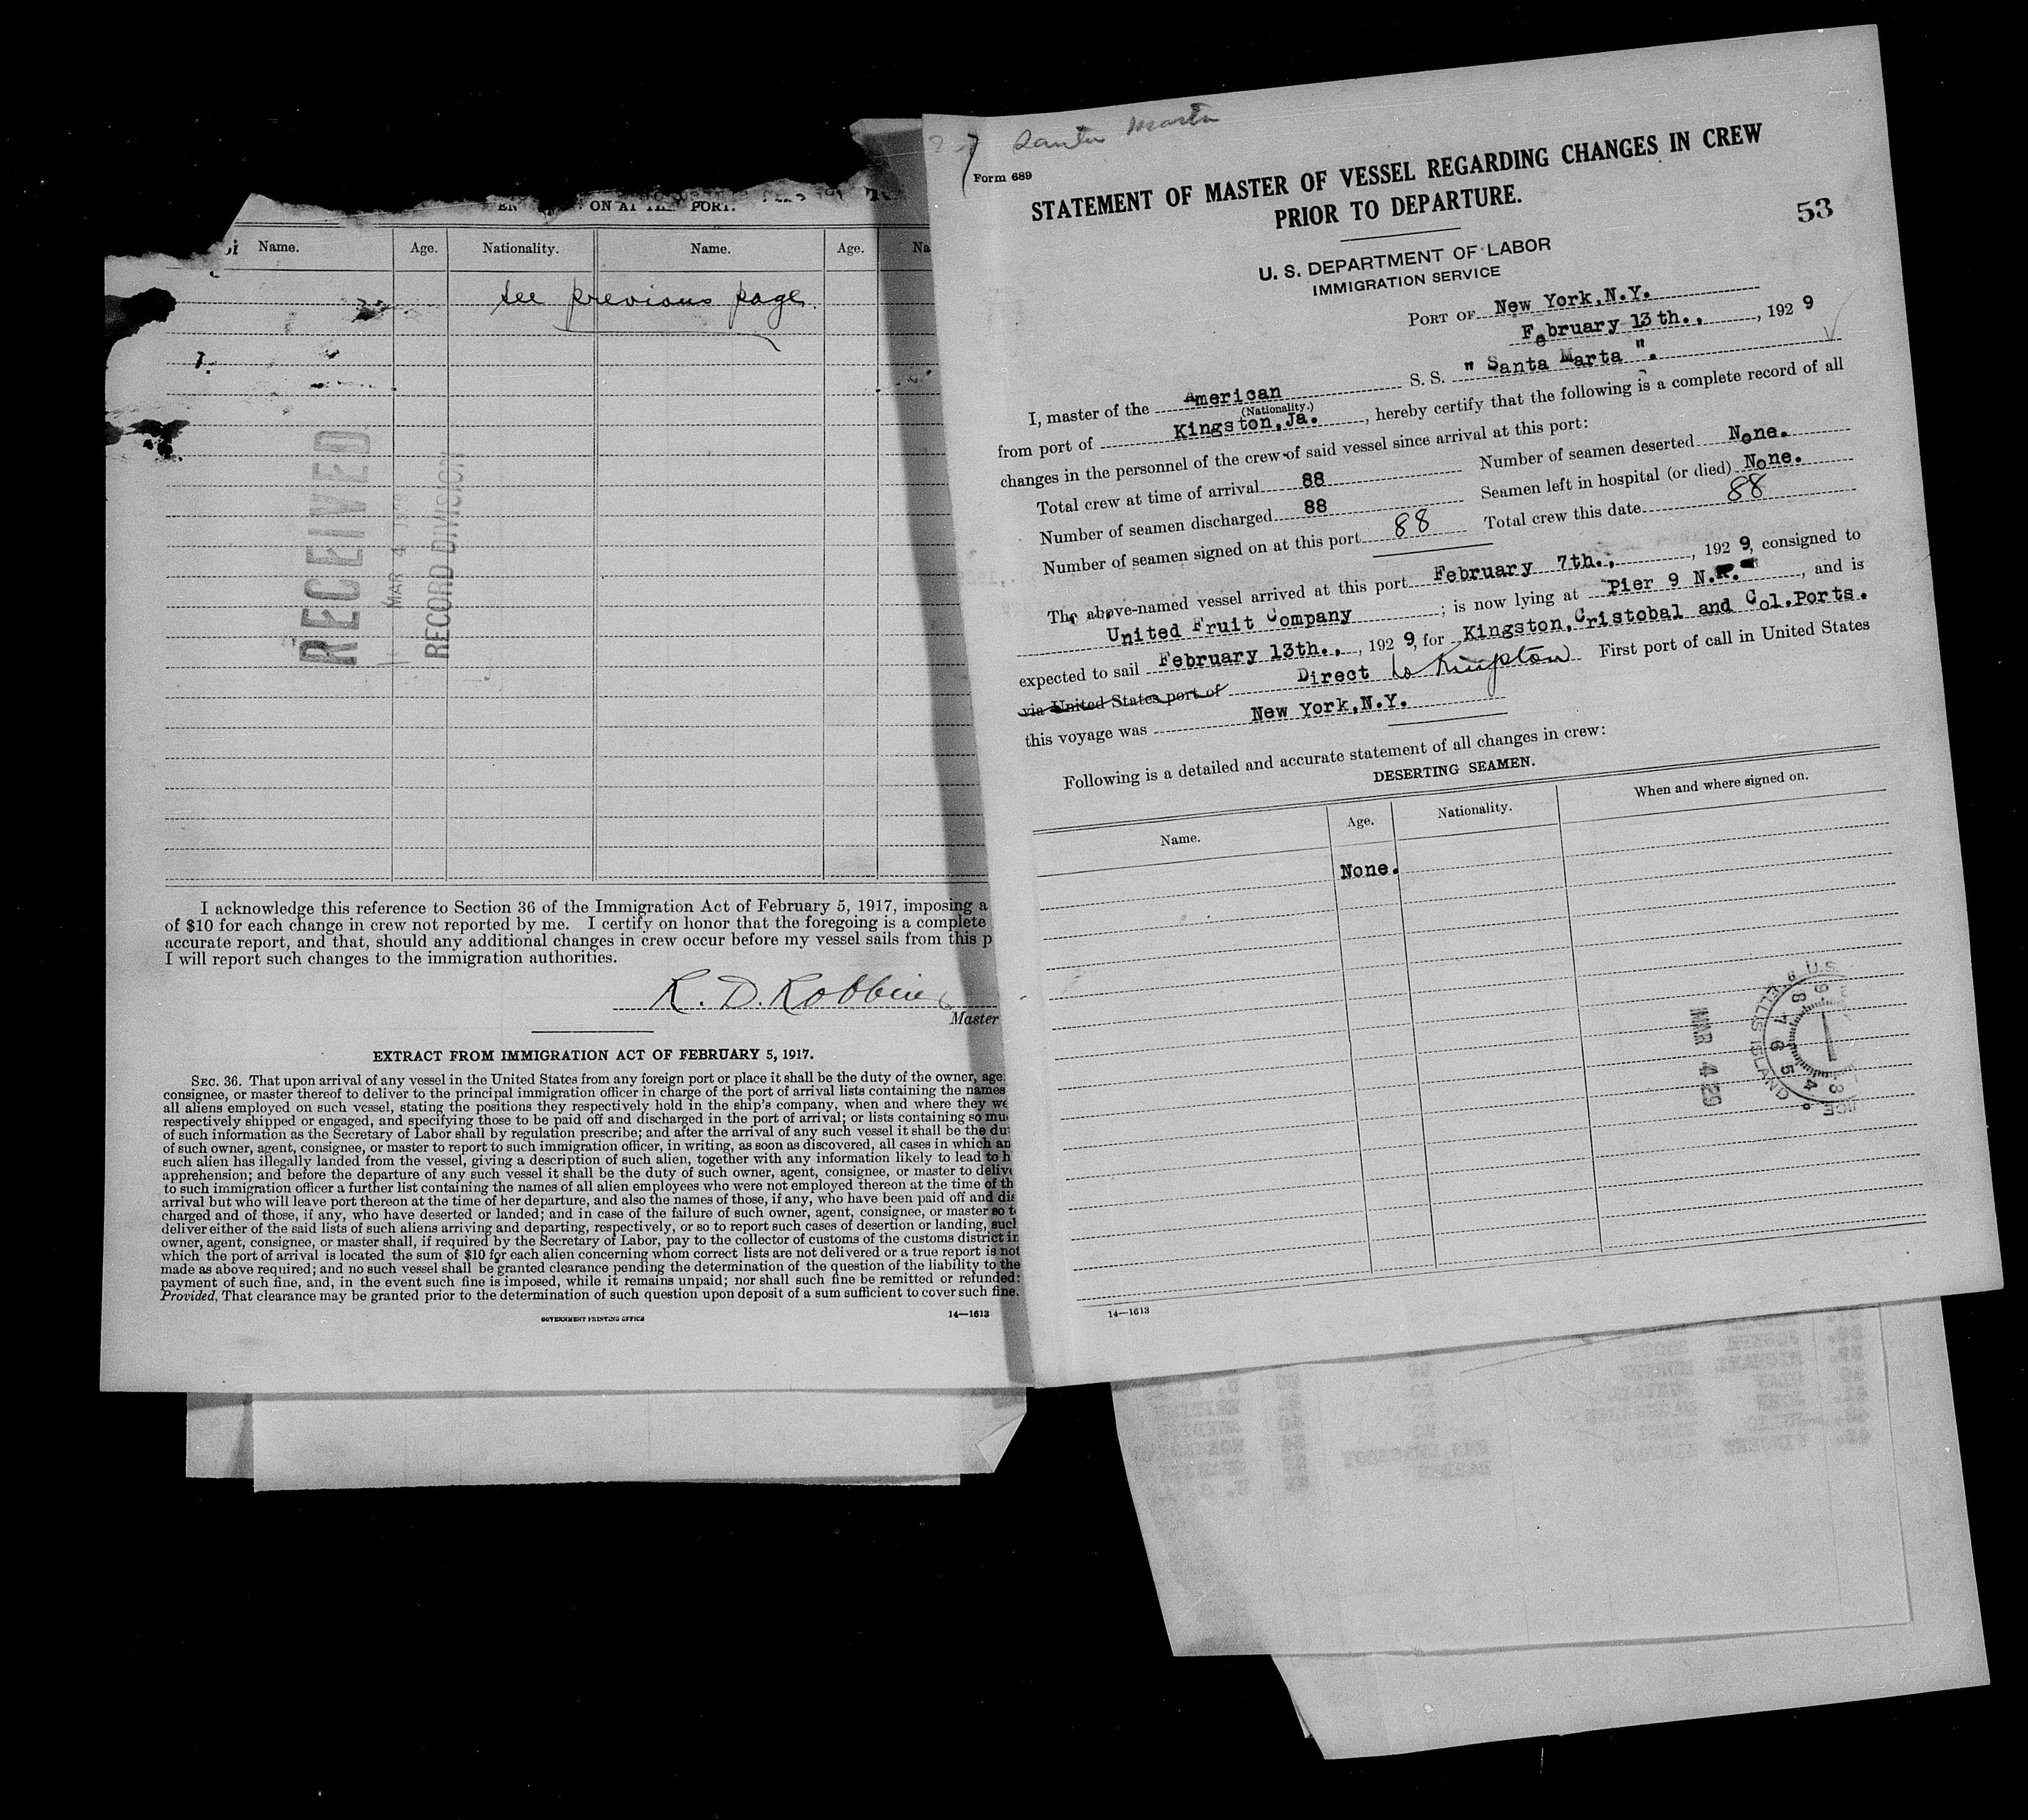 ON AT PORT.
Name. Age. Nationality. Name. Age. Na
see previous page
RECEIVED
MAR 4
RECORD DIVISION
I acknowledge this reference to Section 36 of the Immigration Act of February 5, 1917, imposing a
of $10 for each change in crew not reported by me. I certify on honor that the foregoing is a complete
accurate report, and that, should any additional changes in crew occur before my vessel sails from this p
I will report such changes to the immigration authorities.
R. D. Robbins
Master
EXTRACT FROM IMMIGRATION ACT OF FEBRUARY 5, 1917.
SEC. 36. That upon arrival of any vessel in the United States from any foreign port or place it shall be the duty of the owner, age
consignee, or master thereof to deliver to the principal immigration officer in charge of the port of arrival lists containing the names
all aliens employed on such vessel, stating the positions they respectively hold in the ship's company, when and where they we
respectively shipped or engaged, and specifying those to be paid off and discharged in the port of arrival; or lists containing so mu
of such information as the Secretary of Labor shall by regulation prescribe; and after the arrival of any such vessel it shall be the du
of such owner, agent, consignee, or master to report to such immigration officer, in writing, as soon as discovered, all cases in which an
such alien has illegally landed from the vessel, giving a description of such alien, together with any information likely to lead to h
apprehension; and before the departure of any such vessel it shall be the duty of such owner, agent, consignee, or master to delive
to such immigration officer a further list containing the names of all alien employees who were not employed thereon at the time of th
arrival but who will leave port thereon at the time of her departure, and also the names of those, if any, who have been paid off and dis
charged and of those, if any, who have deserted or landed; and in case of the failure of such owner, agent, consignee, or master so t
deliver either of the said lists of such aliens arriving and departing, respectively, or so to report such cases of desertion or landing, such
owner, agent, consignee, or master shall, if required by the Secretary of Labor, pay to the collector of customs of the customs district in
which the port of arrival is located the sum of $10 for each alien concerning whom correct lists are not delivered or a true report is not
made as above required; and no such vessel shall be granted clearance pending the determination of the question of the liability to the
payment of such fine, and, in the event such fine is imposed, while it remains unpaid; nor shall such fine be remitted or refunded:
Provided, That clearance may be granted prior to the determination of such question upon deposit of a sum sufficient to cover such fine.
GOVERNMENT PRINTING OFFICE 14—1613
Santa Marta
Form 689
STATEMENT OF MASTER OF VESSEL REGARDING CHANGES IN CREW
PRIOR TO DEPARTURE.
53
U. S. DEPARTMENT OF LABOR
IMMIGRATION SERVICE
PORT OF New York,N.Y.
February 13th., , 192 9
I, master of the American S. S. " Santa Marta ".
(Nationality.)
from port of Kingston,Ja. , hereby certify that the following is a complete record of all
changes in the personnel of the crew of said vessel since arrival at this port:
Total crew at time of arrival 88 Number of seamen deserted None.
Number of seamen discharged 88 Seamen left in hospital (or died) None.
Number of seamen signed on at this port 88 Total crew this date 88
The above-named vessel arrived at this port February 7th., , 192 9, consigned to
United Fruit Company ; is now lying at Pier 9 N.R. , and is
expected to sail February 13th., , 192 9, for Kingston,Cristobal and Col.Ports.
via United States port of Direct to Kingston First port of call in United States
this voyage was New York,N.Y.
Following is a detailed and accurate statement of all changes in crew:
DESERTING SEAMEN.
Name. Age. Nationality. When and where signed on.
None.
MAR 4 29
U.S.
ELLIS ISLAND
14—1613